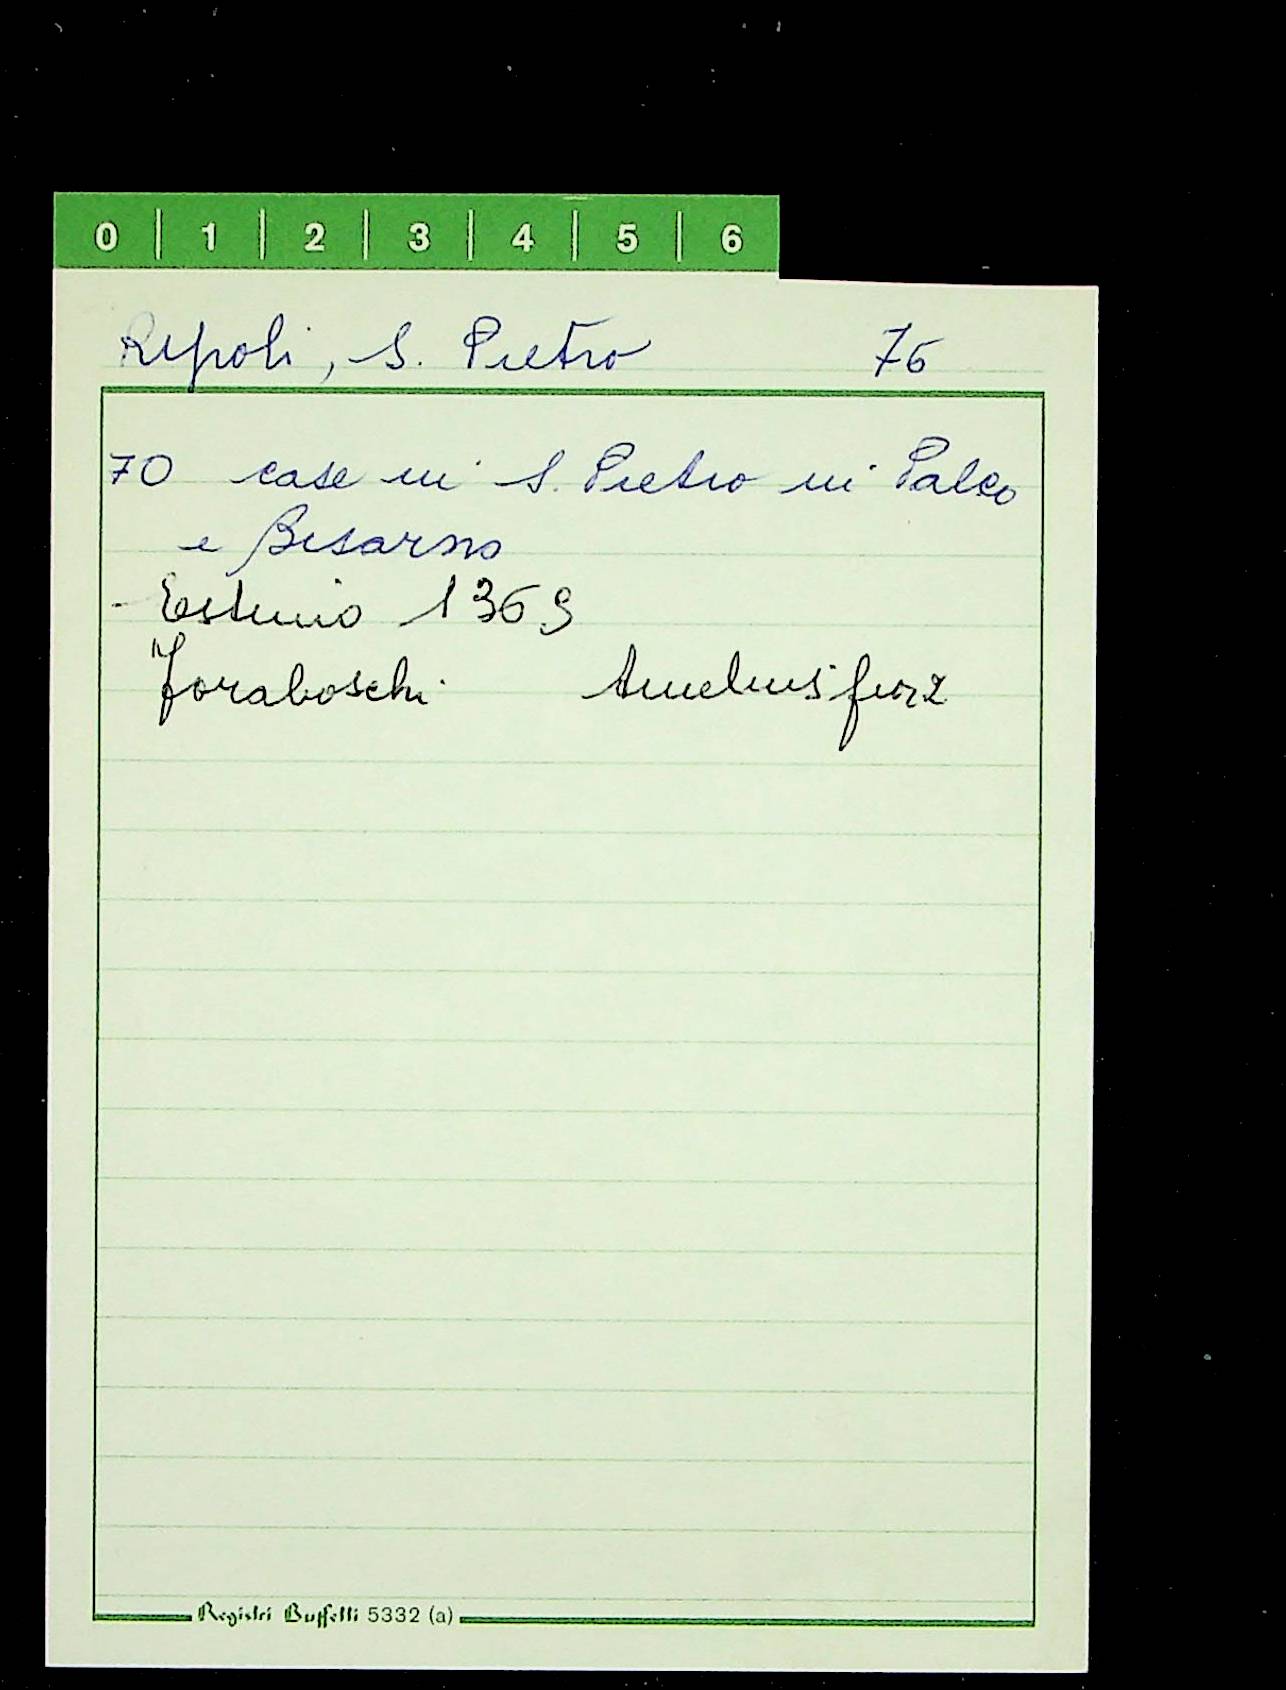 0 | 1 | 2 | 3 | 4 | 5 | 6
Ripoli, S. Pietro 76
70 case in S. Pietro in Palco
e Bisarno
- Estimo 1369
Foraboschi
Registri Buffetti 5332 (a)